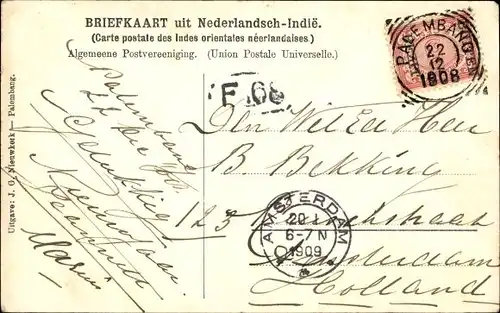 BRIEFKAART uit Nederlandsch-Indië.
(Carte postale des Indes orientales néerlandaises)
Algemeene Postvereeniging. (Union Postale Universelle.)
PALEMBANG
22
12
1908
F 68
Palembang
22 Dec
Gelukkig
Nieuwjaar
Den WelEd Heer
B. Bekking
123
Amsterdam
Holland
AMSTERDAM
20 1
6-7 N
1909
Uitgave: J. G. Nieuwkerk — Palembang.